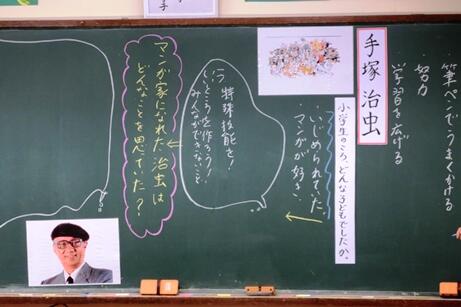 ・筆ペンでうまくかける
・努力
・学習を広げる
手塚治虫
小学生のころ、どんな子どもでしたか。
・いじめられていた。
・マンガが好き。
特殊技能を!
いいところを作ろう!
みんなができないこと
マンガ家になれた治虫は
どんなことを思っていた?